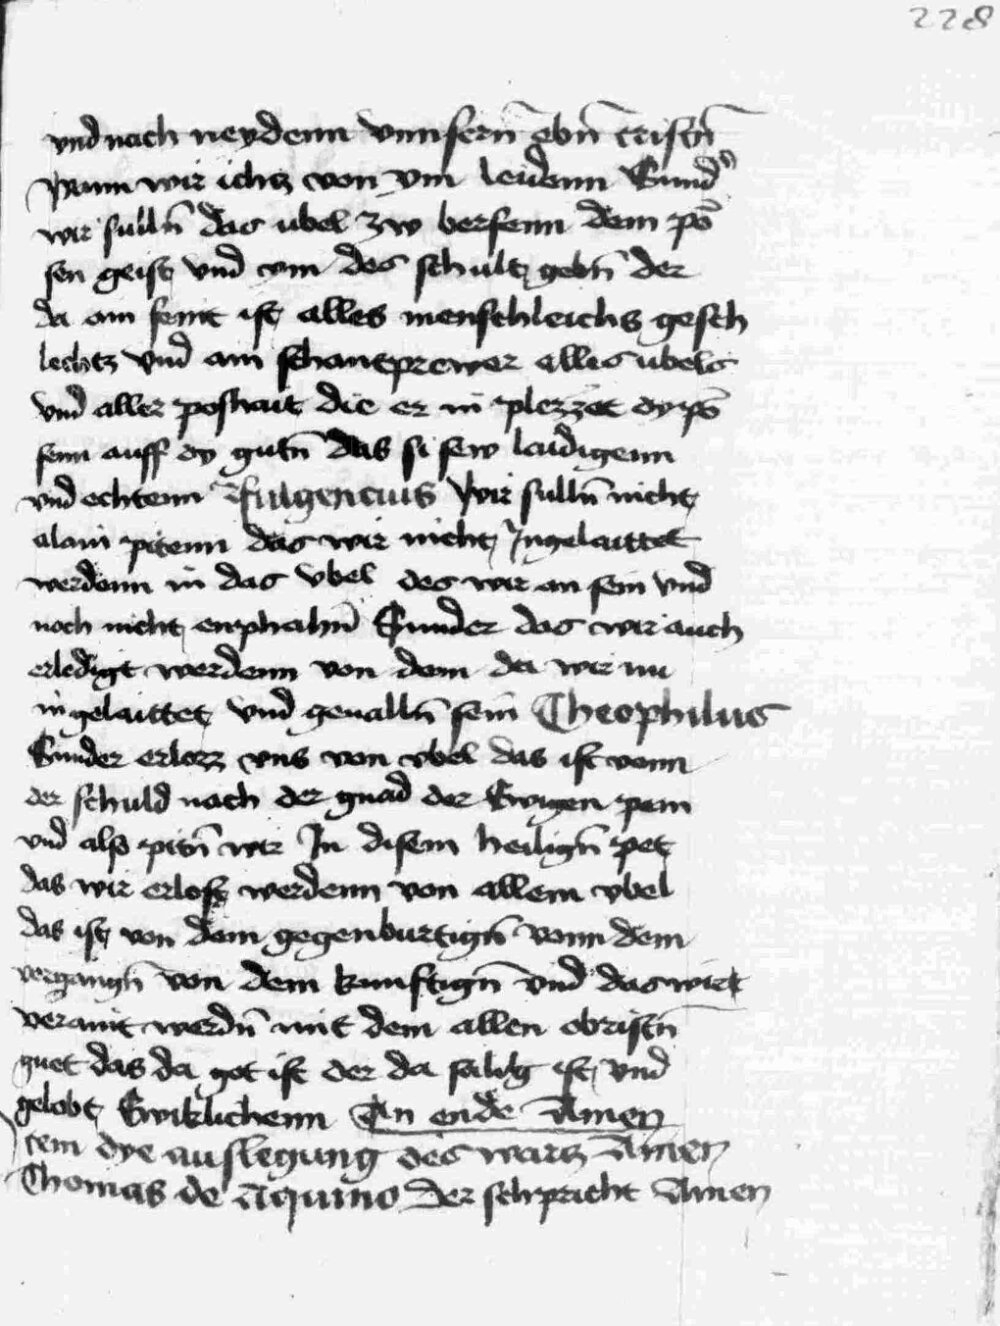 228
vnd nach neydenn vnnsern̄ ebn̄ cristn̄
Wann wir ichtz von ym leidenn Sunder
wir sulln̄ das ubel zw versenn dem pö
sen geist vnd ym des schult gebn̄ der
da ain feint ist alles menschleichs gesch
lechtz vnd ain schantprewer alles ubels
vnd aller poshait die er in plezzet dy pö
senn auff dy gutn̄ das si sew laidigenn
vnd echtenn Fulgencius Wir sulln̄ nicht
alain pitenn das wir nicht Ingelaittet
werdenn in das vbel des wir an sein vnd
noch nicht enphahn̄ Sunder das wir auch
erledigt werdenn von dem da wir nu
in gelaittet vnd geualln̄ sein Theophilus
Sunder erlozz vns von vbel das ist vonn
der schuld nach der gnad der Ewigen pein
vnd also pitn̄ wir In disem heilign̄ pet
das wir erlost werdenn von allem vbel
das ist von dem gegenburtign̄ vonn dem
vergangn̄ von dem kunftign̄ vnd das wirt
veraint werdn̄ mit dem allen obristn̄
guet das da got ist der da salig ist vnd
gelobt Ewiklichenn An ende Amen
Item dye auslegung des wartz Amen
Thomas de Aquino der schpricht Amen